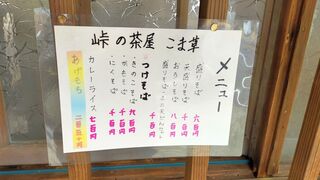 峠の茶屋 こま草
メニュー
盛りそば 六百円
天盛りそば 千百円
おろしそば 八百円
盛りそば
つけそば 千百円
・きのこそば 九百円
・かもそば 千百円
・にくそば 千百円
カレーライス 七百円
あげもち 二百五十円